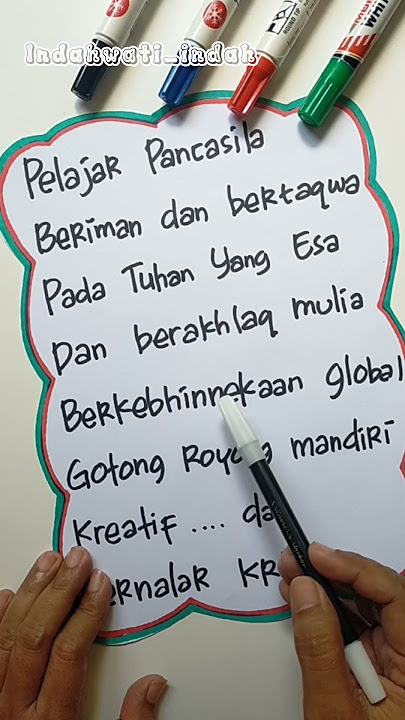 Indahwati_indah
Pelajar Pancasila
Beriman dan bertaqwa
Pada Tuhan Yang Esa
Dan berakhlaq mulia
Berkebhinnekaan global
Gotong Royong mandiri
Kreatif .... da
ernalar KR